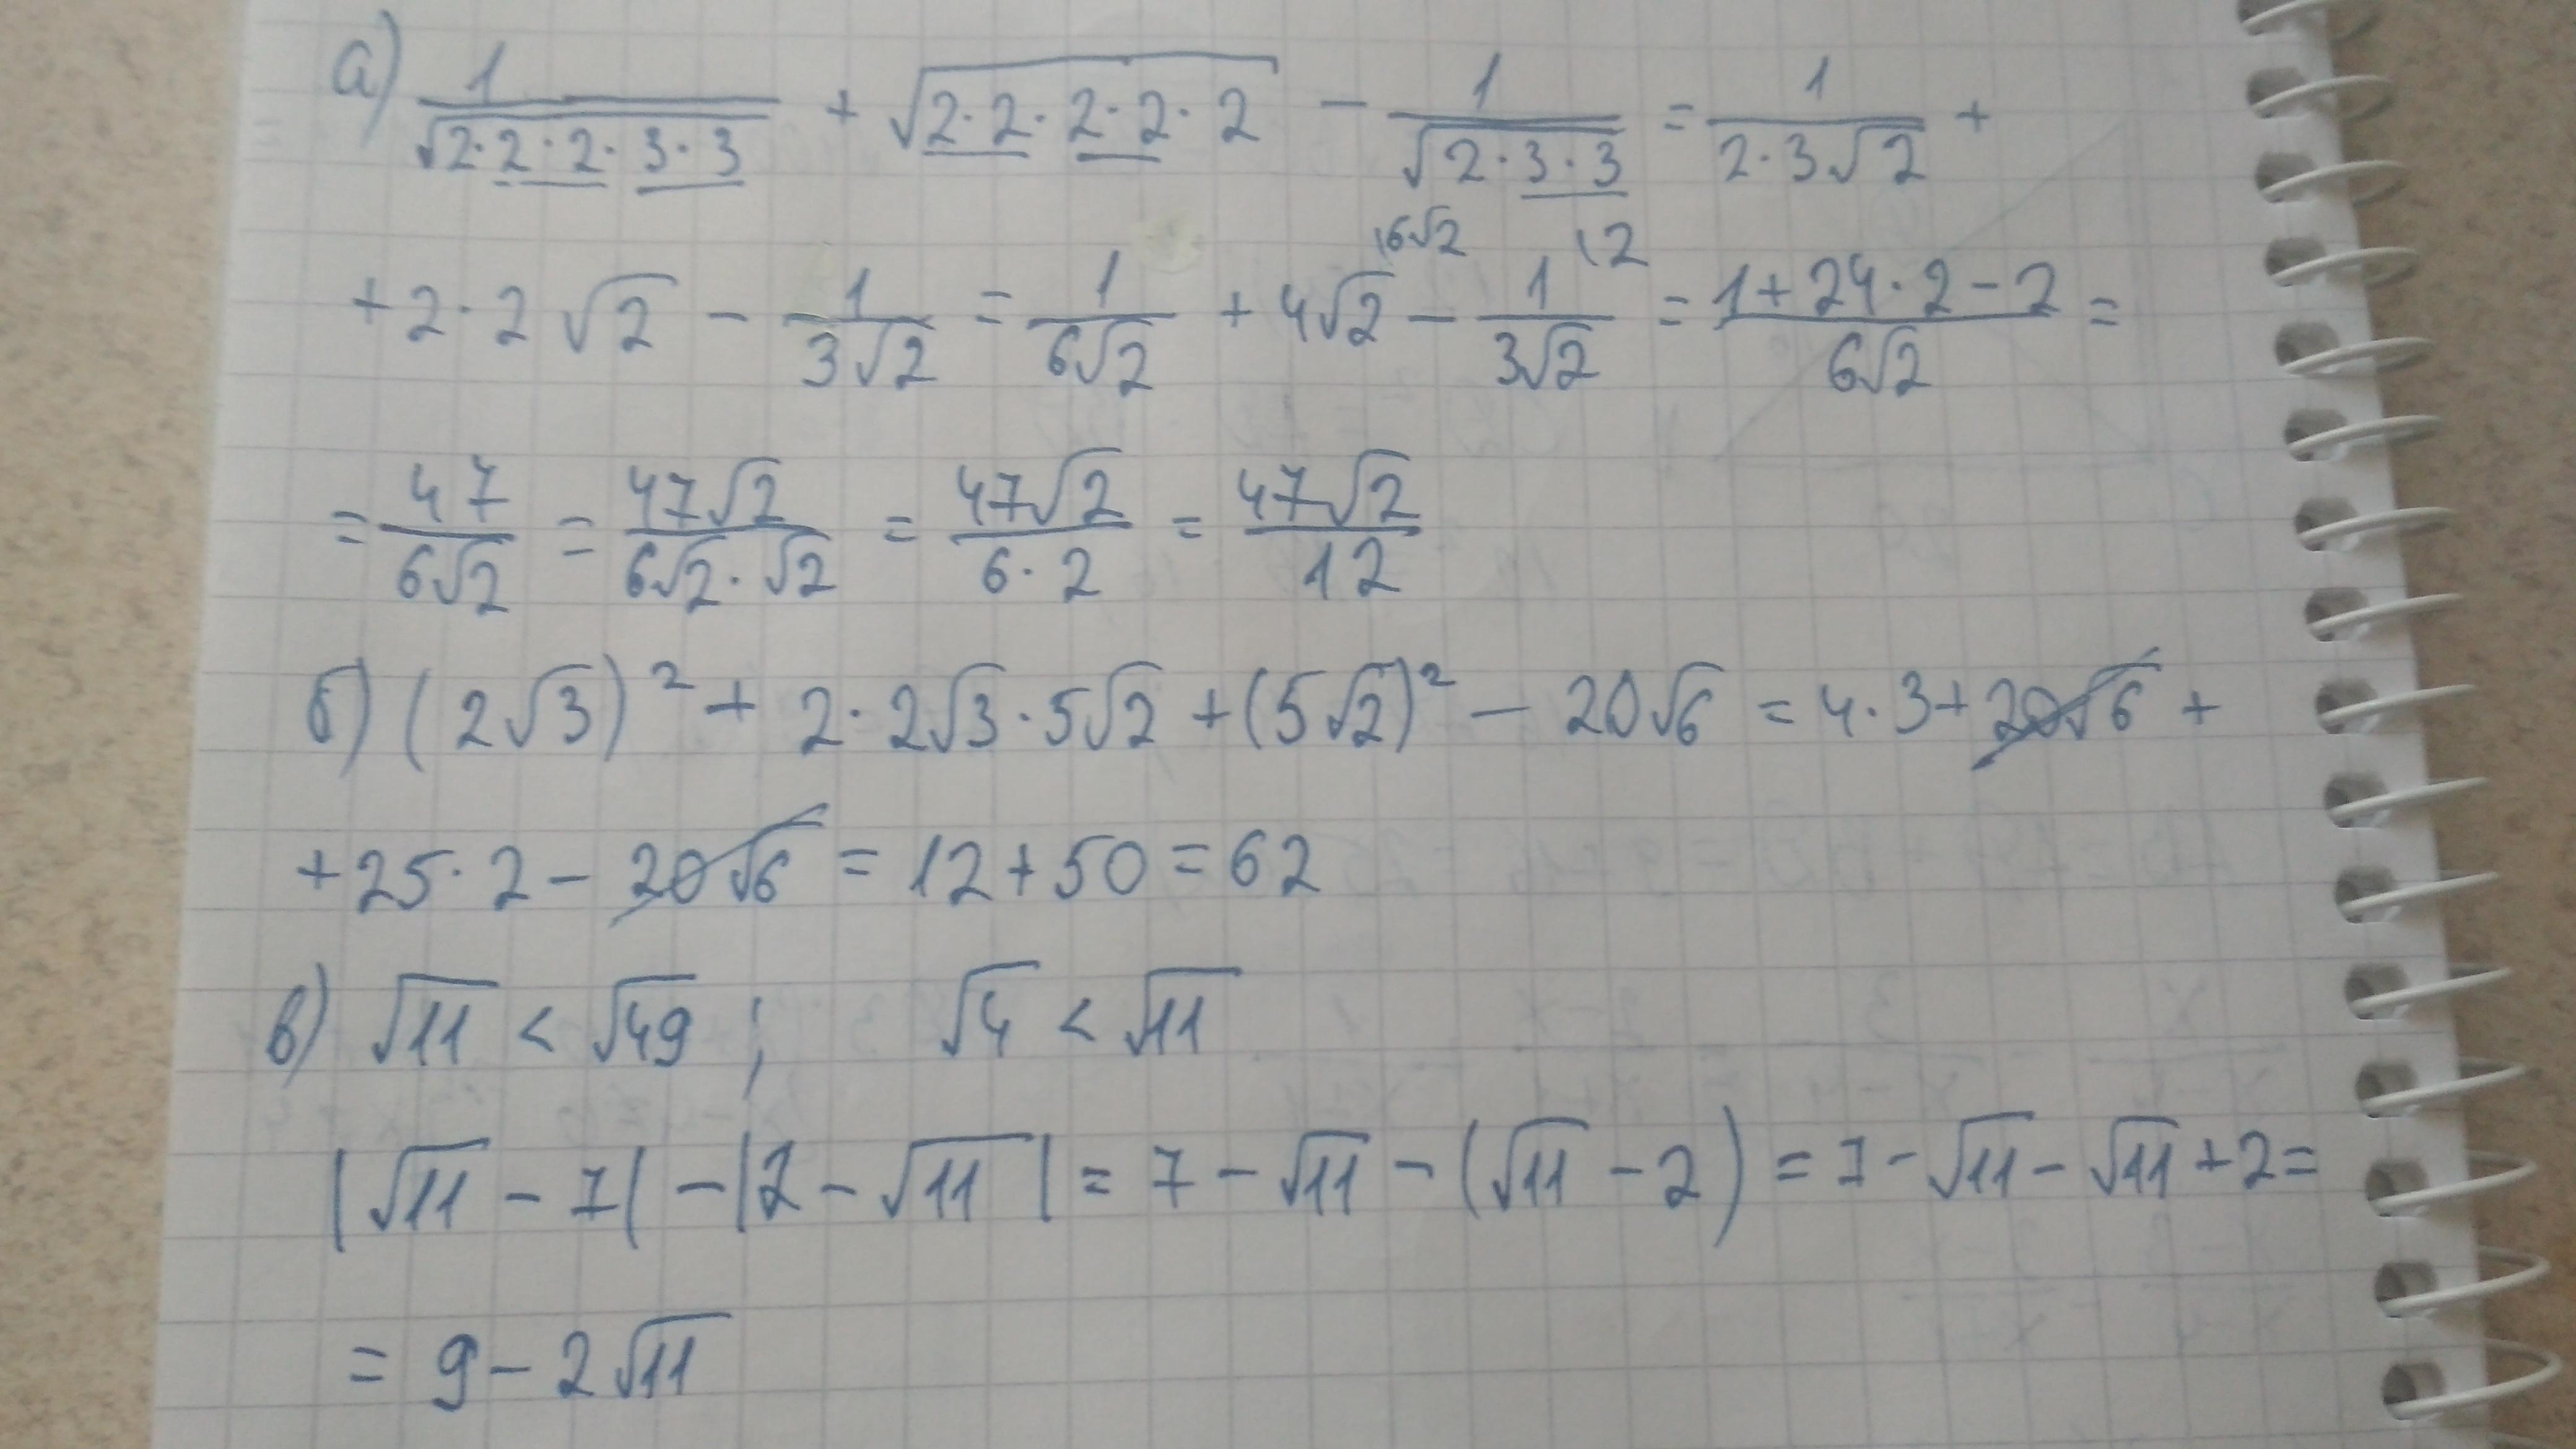 а) 1/√(2·2·2·3·3) + √(2·2·2·2·2) − 1/√(2·3·3) = 1/(2·3√2) +
+ 2·2√2 − 1/(3√2) = 1/(6√2) + 4√2 \6√2 − 1/(3√2) \2 = (1+24·2−2)/(6√2) =
= 47/(6√2) = 47√2/(6√2·√2) = 47√2/(6·2) = 47√2/12
б) (2√3)² + 2·2√3·5√2 + (5√2)² − 20√6 = 4·3 + 20√6 +
+ 25·2 − 20√6 = 12 + 50 = 62
в) √11 < √49 ; √4 < √11
|√11 − 7| − |2 − √11| = 7 − √11 − (√11 − 2) = 7 − √11 − √11 + 2 =
= 9 − 2√11